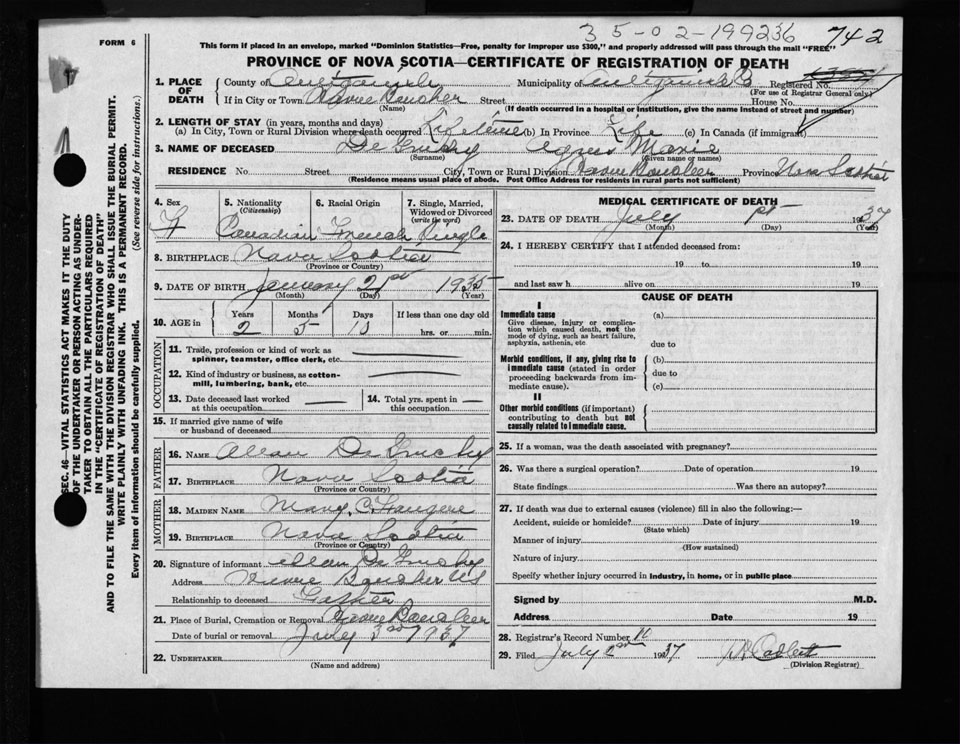 35-02-199236
742
FORM 6
This form if placed in an envelope, marked "Dominion Statistics—Free, penalty for improper use $300," and properly addressed will pass through the mail "FREE"
PROVINCE OF NOVA SCOTIA—CERTIFICATE OF REGISTRATION OF DEATH
1. PLACE OF DEATH
County of Antigonish Municipality of Antigonish Registered No.
(For use of Registrar General only)
If in City or Town Havre Boucher Street House No.
(Name) (If death occurred in a hospital or institution, give the name instead of street and number)
2. LENGTH OF STAY (in years, months and days)
(a) In City, Town or Rural Division where death occurred Lifetime (b) In Province Life (c) In Canada (if immigrant)
3. NAME OF DECEASED De Gruchy Agnes Marie
(Surname) (Given name or names)
RESIDENCE No. Street City, Town or Rural Division Province Nova Scotia
(Residence means usual place of abode. Post Office Address for residents in rural parts not sufficient)
4. Sex 5. Nationality (Citizenship) 6. Racial Origin 7. Single, Married, Widowed or Divorced (write the word)
F Canadian French Single
8. BIRTHPLACE Nova Scotia
(Province or Country)
9. DATE OF BIRTH January 21st 1935
(Month) (Day) (Year)
10. AGE in Years Months Days If less than one day old
2 5 hrs. or min.
OCCUPATION
11. Trade, profession or kind of work as spinner, teamster, office clerk, etc.
12. Kind of industry or business, as cotton-mill, lumbering, bank, etc.
13. Date deceased last worked at this occupation 14. Total yrs. spent in this occupation
15. If married give name of wife or husband of deceased
FATHER
16. NAME Allan De Gruchy
17. BIRTHPLACE Nova Scotia
(Province or Country)
MOTHER
18. MAIDEN NAME Mary C.
19. BIRTHPLACE Nova Scotia
(Province or Country)
20. Signature of informant Allan De Gruchy
Address Havre Boucher
Relationship to deceased Father
21. Place of Burial, Cremation or Removal Havre Boucher
Date of burial or removal July 3rd 1937
22. UNDERTAKER
(Name and address)
MEDICAL CERTIFICATE OF DEATH
23. DATE OF DEATH July 1st 1937
(Month) (Day) (Year)
24. I HEREBY CERTIFY that I attended deceased from:
19 to 19
and last saw h alive on 19
CAUSE OF DEATH
I
Immediate cause (a)
Give disease, injury or complication which caused death, not the mode of dying, such as heart failure, asphyxia, asthenia, etc.
due to
Morbid conditions, if any, giving rise to immediate cause (stated in order proceeding backwards from immediate cause).
(b)
due to
(c)
II
Other morbid conditions (if important) contributing to death but not causally related to immediate cause.
25. If a woman, was the death associated with pregnancy?
26. Was there a surgical operation? Date of operation 19
State findings Was there an autopsy?
27. If death was due to external causes (violence) fill in also the following:—
Accident, suicide or homicide? Date of injury 19
(State which)
Manner of injury
(How sustained)
Nature of injury
Specify whether injury occurred in industry, in home, or in public place
Signed by M.D.
Address Date 19
28. Registrar's Record Number
29. Filed July 2nd 1937
(Division Registrar)
SEC. 46—VITAL STATISTICS ACT MAKES IT THE DUTY
OF THE UNDERTAKER OR PERSON ACTING AS UNDER-
TAKER TO OBTAIN ALL THE PARTICULARS REQUIRED
IN THE "CERTIFICATE OF REGISTRATION OF DEATH"
AND TO FILE THE SAME WITH THE DIVISION REGISTRAR WHO SHALL ISSUE THE BURIAL PERMIT.
WRITE PLAINLY WITH UNFADING INK. THIS IS A PERMANENT RECORD.
Every item of information should be carefully supplied. (See reverse side for instructions.)